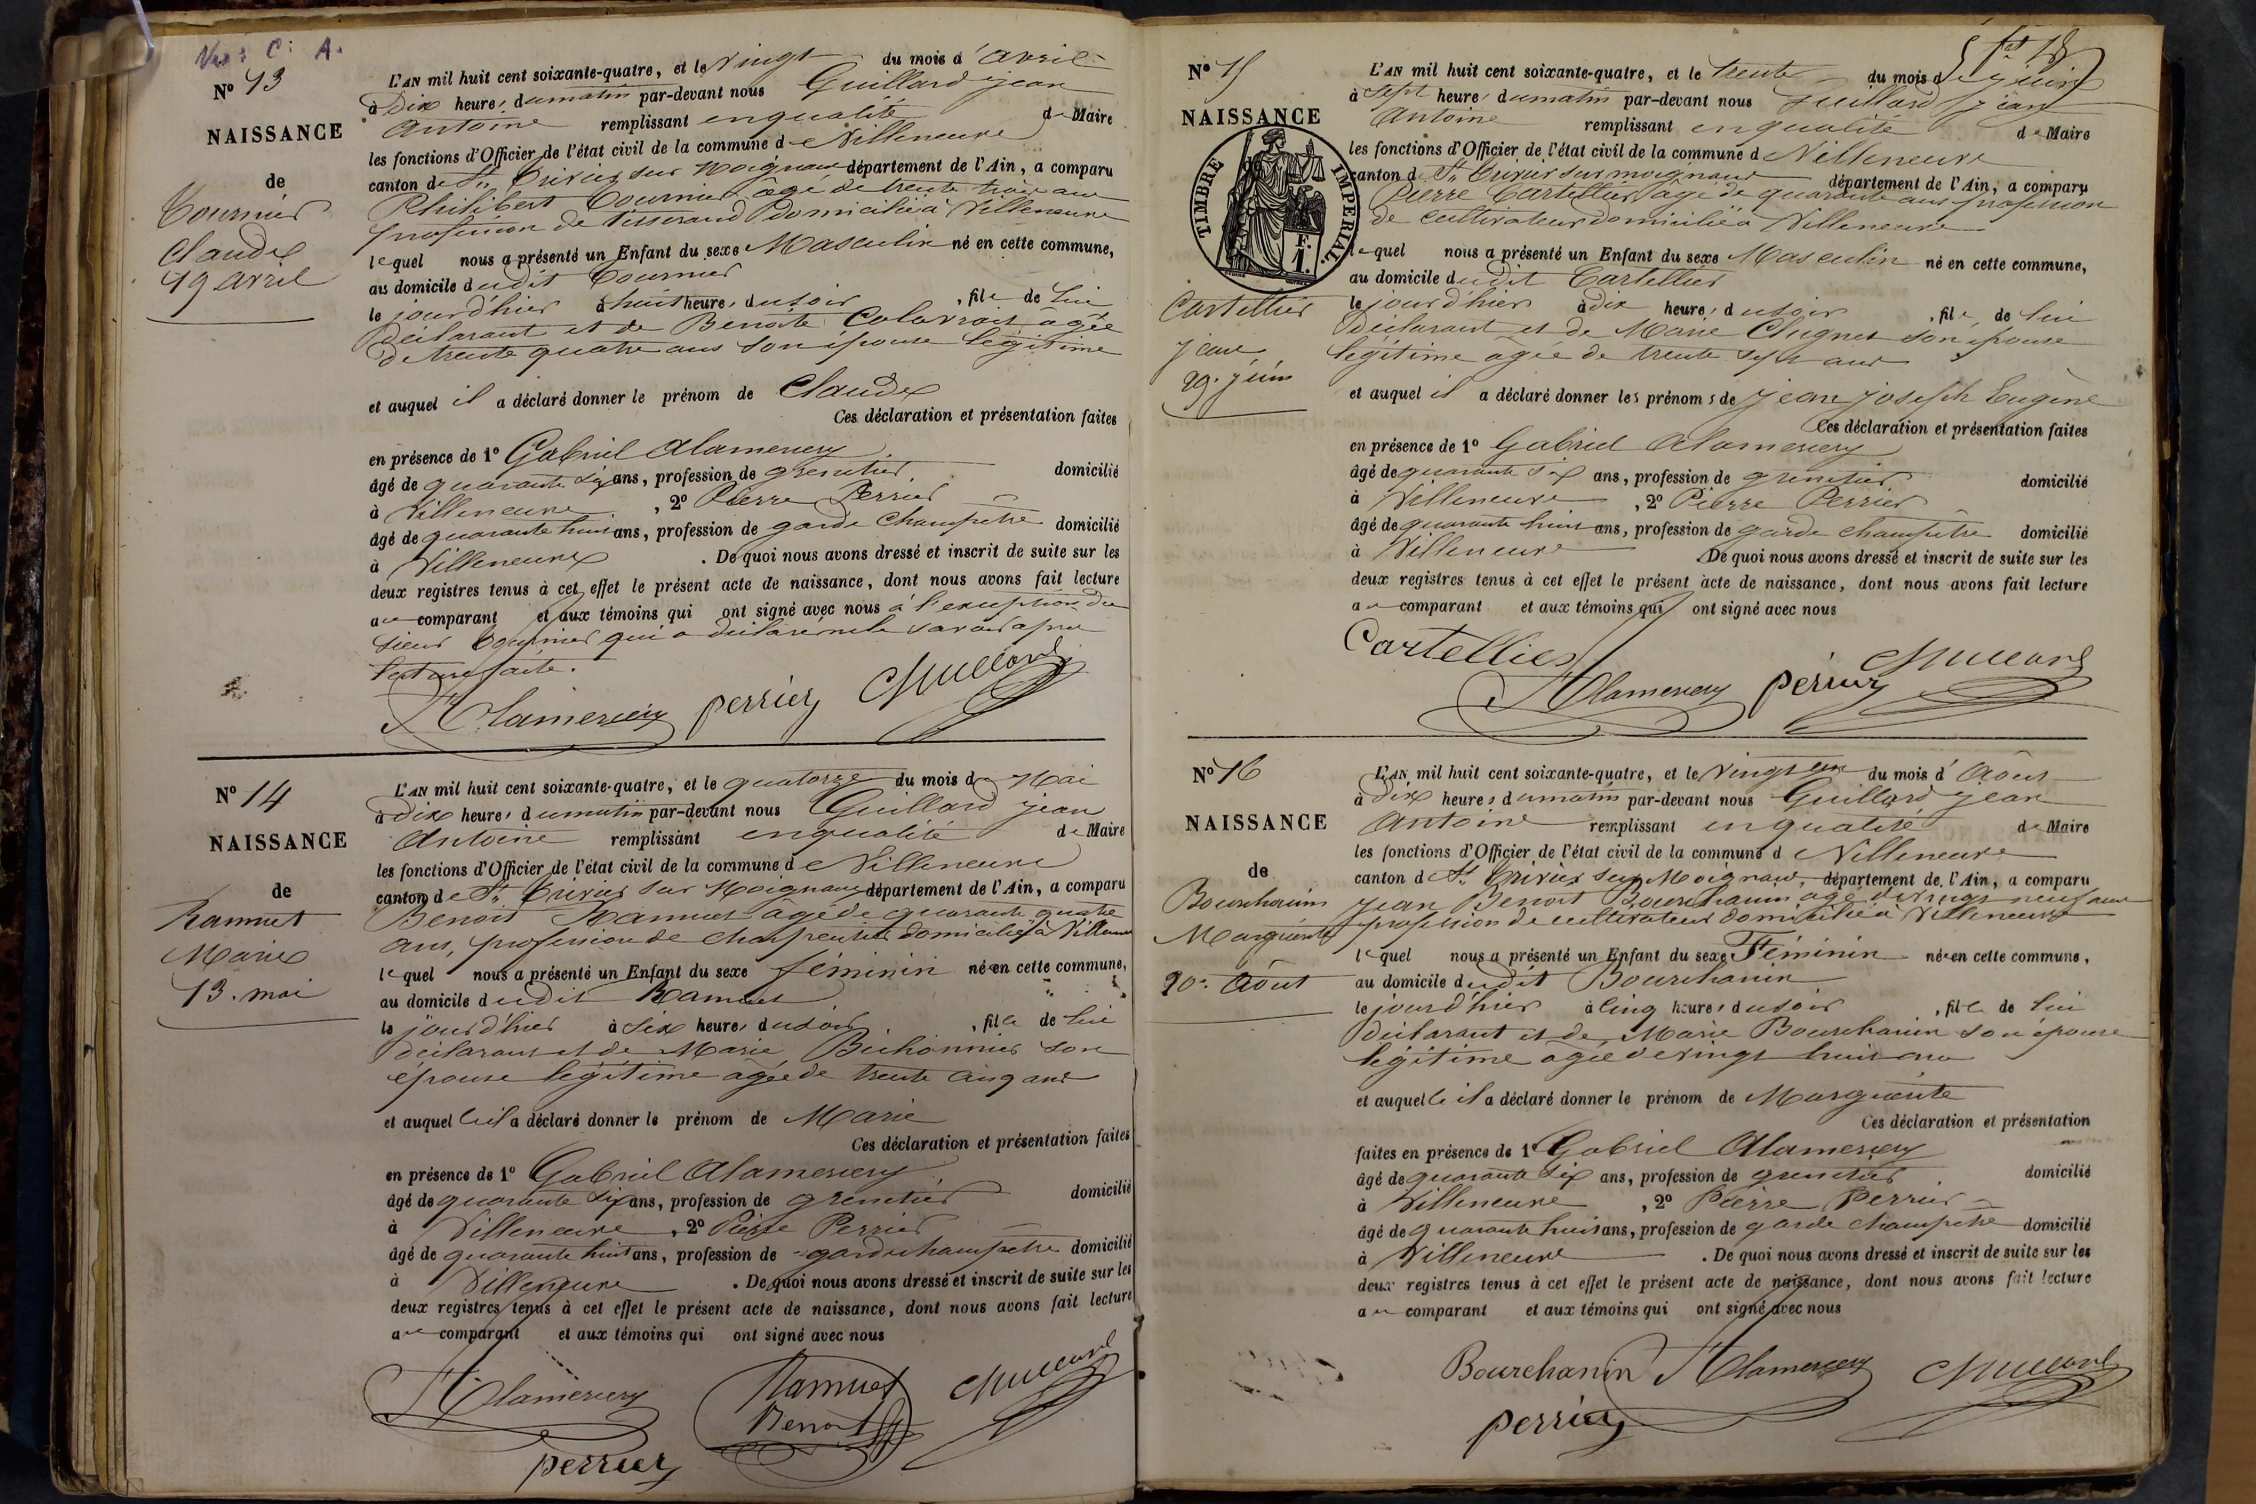 Nº 13
NAISSANCE
de
Tournier
Claude
19 avril
L'AN mil huit cent soixante-quatre, et le vingt du mois d'avril
à Dix heures du matin par-devant nous Guillard jean
Antoine remplissant en qualité de Maire
les fonctions d'Officier de l'état civil de la commune de Villeneuve
canton de St Trivier sur Moignans département de l'Ain, a comparu
Philibert Tournier âgé de trente trois ans
profession de tisserand domicilié à Villeneuve
lequel nous a présenté un Enfant du sexe Masculin né en cette commune,
au domicile dudit Tournier
le jour d'hier à huit heures du soir, fils de lui
Déclarant et de Benoite âgée
de trente quatre ans son épouse légitime
et auquel il a déclaré donner le prénom de Claude
Ces déclaration et présentation faites
en présence de 1º Gabriel Alamercery
âgé de quarante six ans, profession de grenetier domicilié
à Villeneuve, 2º Pierre Perrier
âgé de quarante huit ans, profession de garde champêtre domicilié
à Villeneuve. De quoi nous avons dressé et inscrit de suite sur les
deux registres tenus à cet effet le présent acte de naissance, dont nous avons fait lecture
au comparant et aux témoins qui ont signé avec nous à l'exception du
sieur Tournier qui a déclaré ne le savoir après
lecture faite.
Alamercery perrier Guillard
Nº 14
NAISSANCE
de
Ramuet
Marie
13. mai
L'AN mil huit cent soixante-quatre, et le quatorze du mois de Mai
à dix heures du matin par-devant nous Guillard jean
Antoine remplissant en qualité de Maire
les fonctions d'Officier de l'état civil de la commune de Villeneuve
canton de St Trivier sur Moignans département de l'Ain, a comparu
Benoit Ramuet âgé de quarante quatre
ans, profession de charpentier domicilié à Villeneuve
lequel nous a présenté un Enfant du sexe féminin née en cette commune,
au domicile dudit Ramuet
le jour d'hier à six heures du soir, fille de lui
déclarant et de Marie Bichonnier son
épouse légitime âgée de trente cinq ans
et auquelle il a déclaré donner le prénom de Marie
Ces déclaration et présentation faites
en présence de 1º Gabriel Alamercery
âgé de quarante six ans, profession de grenetier domicilié
à Villeneuve, 2º Pierre Perrier
âgé de quarante huit ans, profession de garde champêtre domicilié
à Villeneuve. De quoi nous avons dressé et inscrit de suite sur les
deux registres tenus à cet effet le présent acte de naissance, dont nous avons fait lecture
au comparant et aux témoins qui ont signé avec nous
Alamercery Ramuet Guillard
Benoit
perrier
Nº 15
NAISSANCE
TIMBRE IMPERIAL
F.
1.
Cartellier
jean
29. juin
L'AN mil huit cent soixante-quatre, et le trente du mois de juin
à sept heures du matin par-devant nous Guillard jean
Antoine remplissant en qualité de Maire
les fonctions d'Officier de l'état civil de la commune d Villeneuve
canton d St Trivier sur moignans département de l'Ain, a comparu
Pierre Cartellier âgé de quarante ans profession
de cultivateur domicilié à Villeneuve
lequel nous a présenté un Enfant du sexe Masculin né en cette commune,
au domicile dudit Cartellier
le jour d'hier à dix heures du soir, fils de lui
Déclarant et de Marie Clugnet son épouse
légitime âgée de trente sept ans
et auquel il a déclaré donner les prénoms de jean joseph Eugène
Ces déclaration et présentation faites
en présence de 1º Gabriel Alamercery
âgé de quarante six ans, profession de grenetier domicilié
à Villeneuve, 2º Pierre Perrier
âgé de quarante huit ans, profession de garde champêtre domicilié
à Villeneuve. De quoi nous avons dressé et inscrit de suite sur les
deux registres tenus à cet effet le présent acte de naissance, dont nous avons fait lecture
au comparant et aux témoins qui ont signé avec nous
Cartellier Guillard
Alamercery perrier
Nº 16
NAISSANCE
de
Bourchanin
Marguerite
20. Août
L'AN mil huit cent soixante-quatre, et le vingt un du mois d'Août
à Dix heures du matin par-devant nous Guillard jean
Antoine remplissant en qualité de Maire
les fonctions d'Officier de l'état civil de la commune d Villeneuve
canton de St Trivier sur Moignans, département de l'Ain, a comparu
jean Benoit Bourchanin âgé de vingt neuf ans
profession de cultivateur domicilié à Villeneuve
lequel nous a présenté un Enfant du sexe Féminin née en cette commune,
au domicile dudit Bourchanin
le jour d'hier à cinq heures du soir, fille de lui
Déclarant et de Marie Bourchanin son épouse
légitime âgée de vingt huit ans
et auquelle il a déclaré donner le prénom de Marguerite
Ces déclaration et présentation
faites en présence de 1º Gabriel Alamercery
âgé de quarante six ans, profession de grenetier domicilié
à Villeneuve, 2º Pierre Perrier
âgé de quarante huit ans, profession de garde champêtre domicilié
à Villeneuve. De quoi nous avons dressé et inscrit de suite sur les
deux registres tenus à cet effet le présent acte de naissance, dont nous avons fait lecture
au comparant et aux témoins qui ont signé avec nous
Bourchanin Alamercery Guillard
perrier